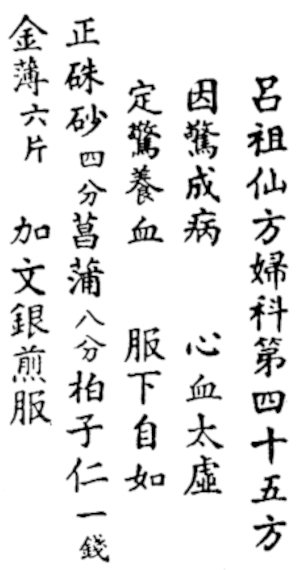 呂祖仙方婦科第四十五方
因驚成病　心血太虛
定驚養血　服下自如
正硃砂四分菖蒲八分柏子仁一錢
金薄六片　加文銀煎服